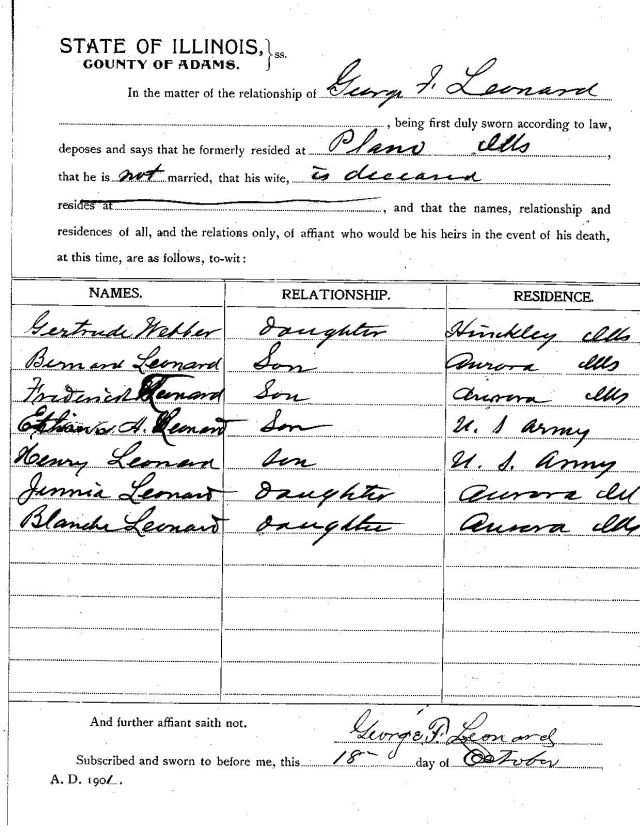 STATE OF ILLINOIS, } ss.
COUNTY OF ADAMS.
In the matter of the relationship of George F. Leonard
, being first duly sworn according to law,
deposes and says that he formerly resided at Plano Ills,
that he is not married, that his wife, is deceased
resides at , and that the names, relationship and
residences of all, and the relations only, of affiant who would be his heirs in the event of his death,
at this time, are as follows, to-wit:
NAMES. RELATIONSHIP. RESIDENCE.
Gertrude Webber Daughter Hinckley Ills
Bernard Leonard Son Aurora Ills
Frederick Leonard Son Aurora Ills
A. Leonard Son U. S Army
Henry Leonard Son U. S. Army
Jennie Leonard Daughter Aurora Ill
Blanche Leonard Daughter Aurora Ills
And further affiant saith not.
George F. Leonard
Subscribed and sworn to before me, this 18 day of October
A. D. 1901.